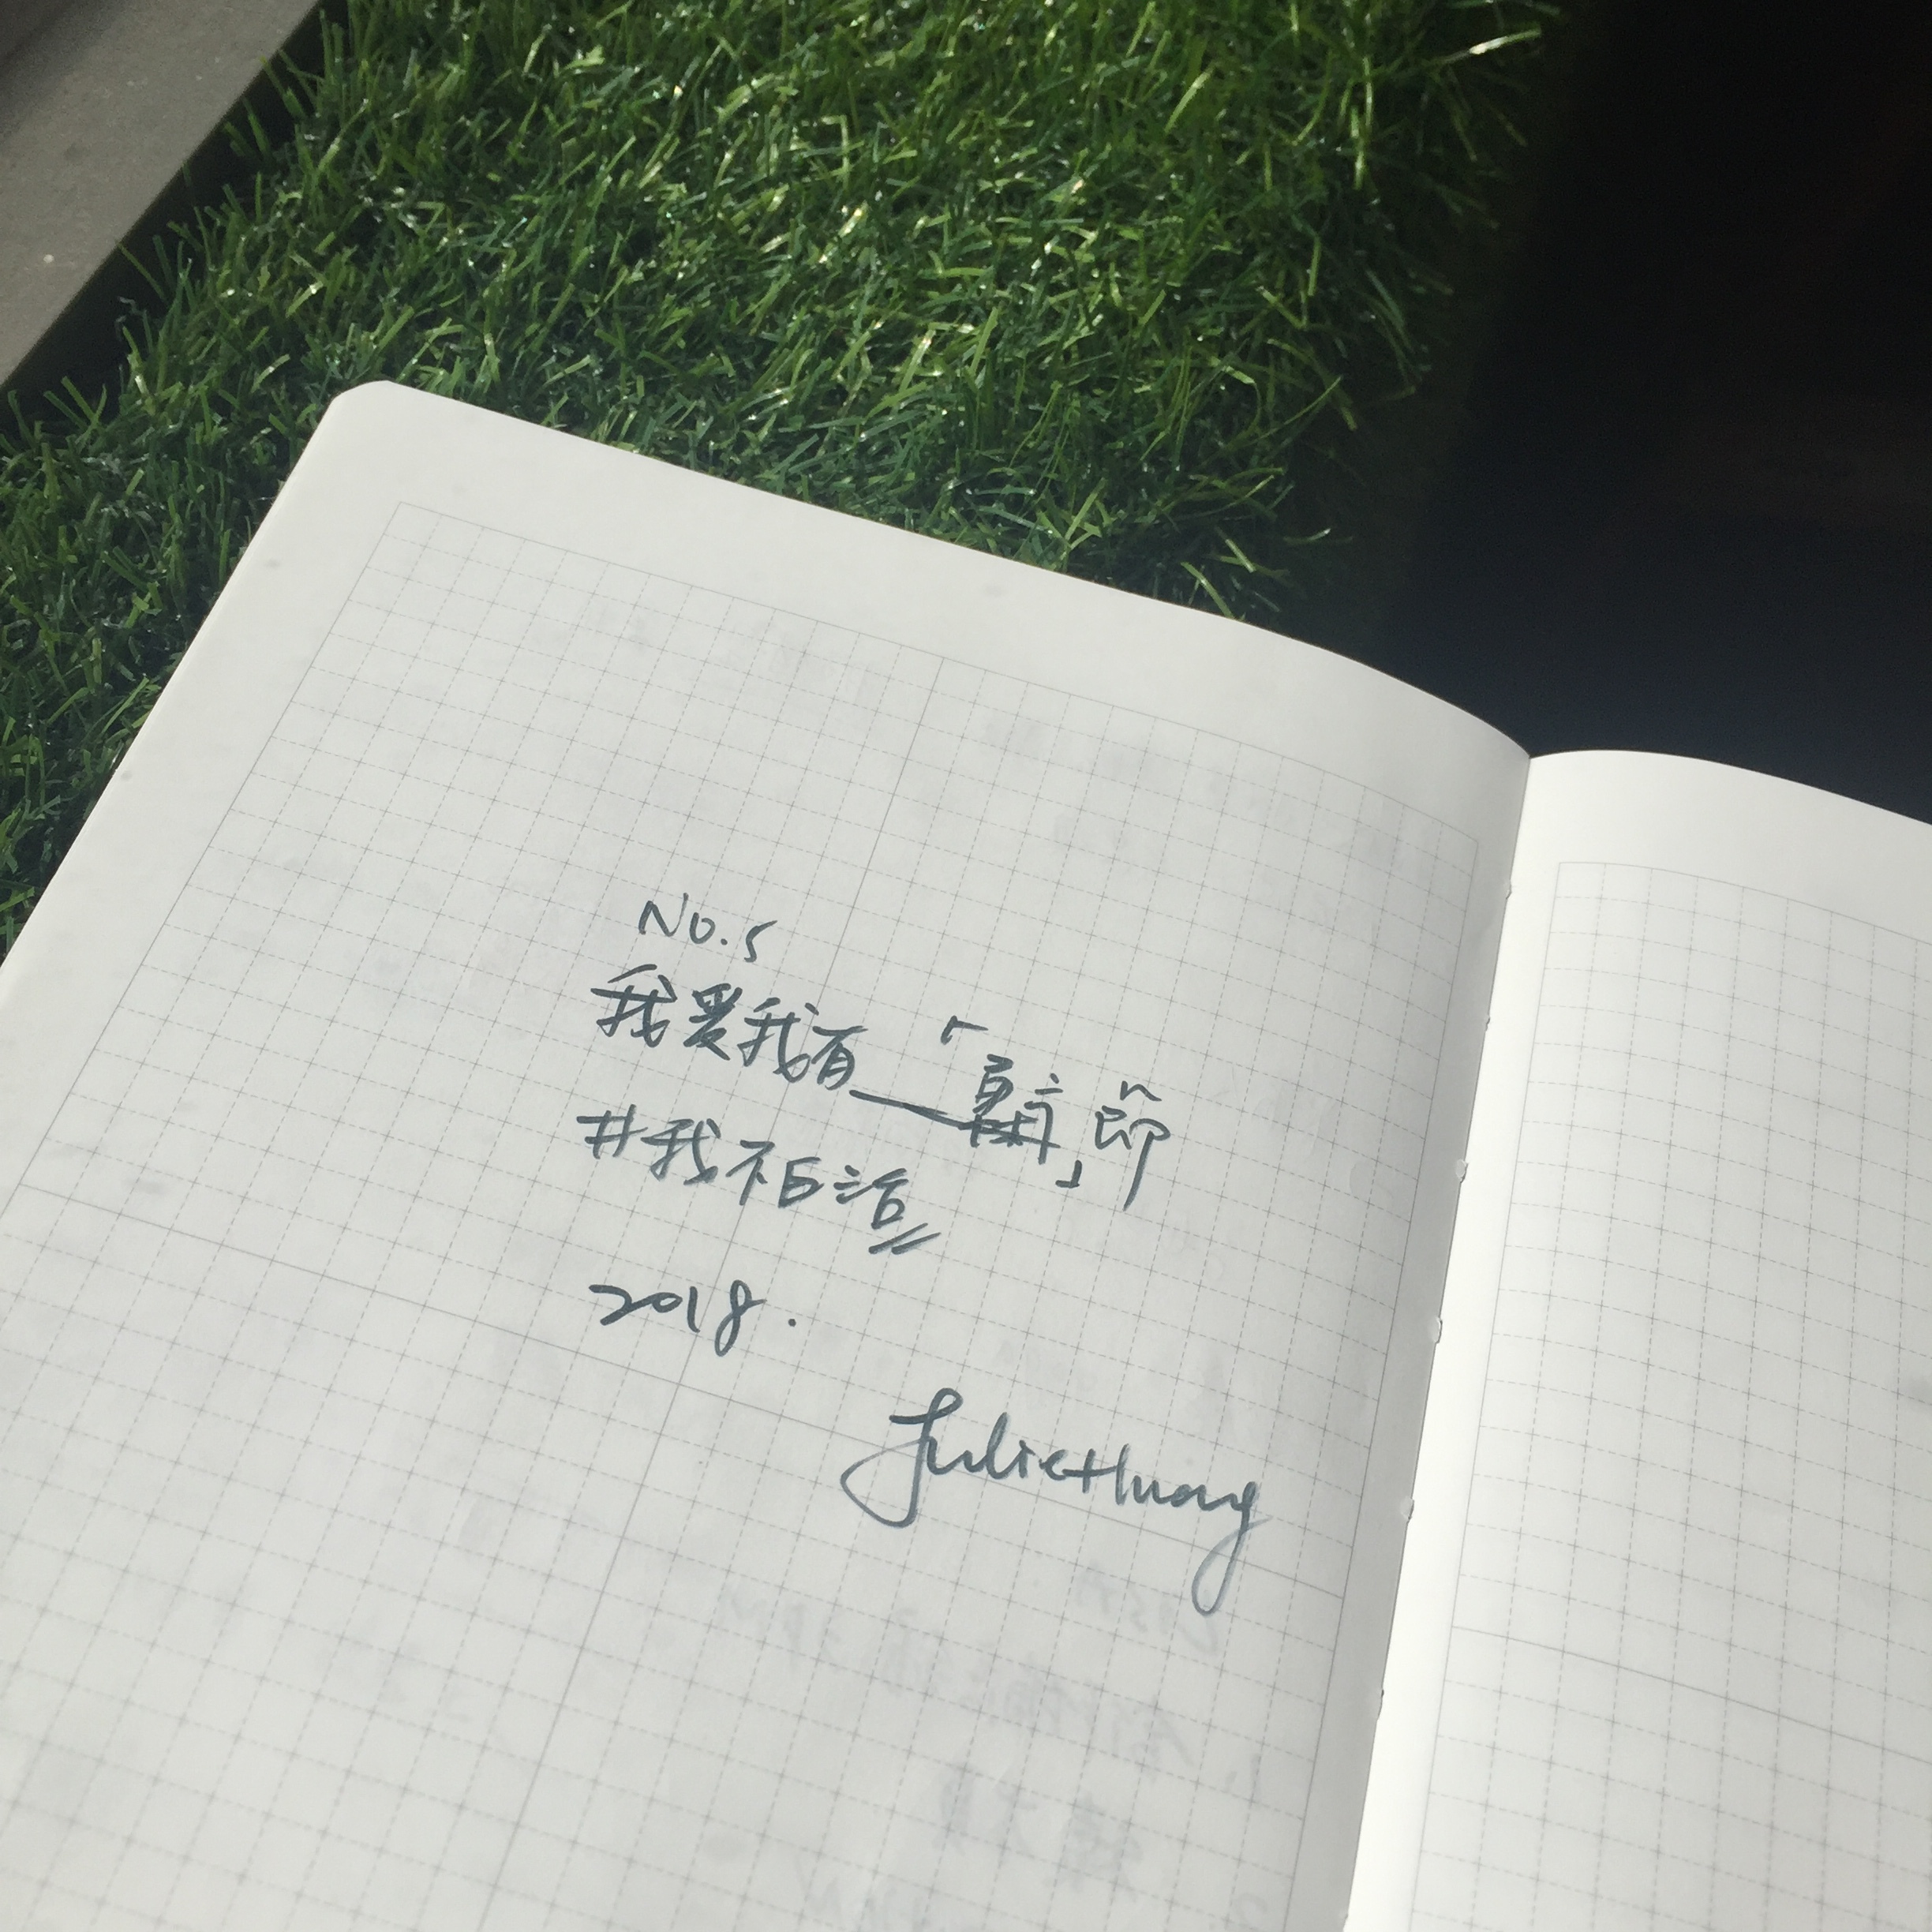 No.5
我爱我有一「 」節
#我不白活
2018.
Julie Huang